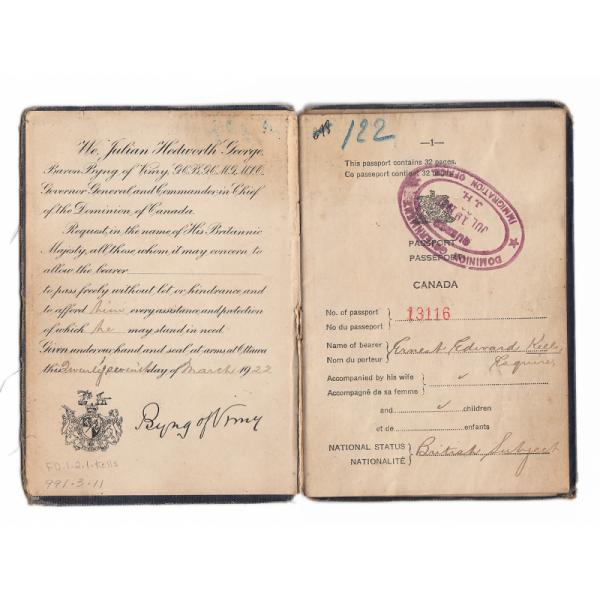 We, Julian Hedworth George,
Baron Byng of Vimy, G.C.B., G.C.M.G., M.V.O.,
Governor General and Commander in Chief
of the Dominion of Canada.
Request, in the name of His Britannic
Majesty, all those whom it may concern to
allow the bearer
to pass freely without let or hindrance and
to afford him every assistance and protection
of which he may stand in need
Given under my hand and seal at arms at Ottawa
this day of March 1922
Byng of Vimy
FD.1-2.1-Kells
991-3-11
122
—1—
This passport contains 32 pages.
Co passeport contient 32
DOMINION
IMMIGRATION OFFICE
J. H.
JUL
PASSPORT
PASSEPORT
CANADA
No. of passport
No du passeport
13116
Name of bearer
Nom du porteur
Ernest Edward Kells
Esquires
Accompanied by his wife
Accompagné de sa femme
and children
et de enfants
NATIONAL STATUS
NATIONALITÉ
British Subject